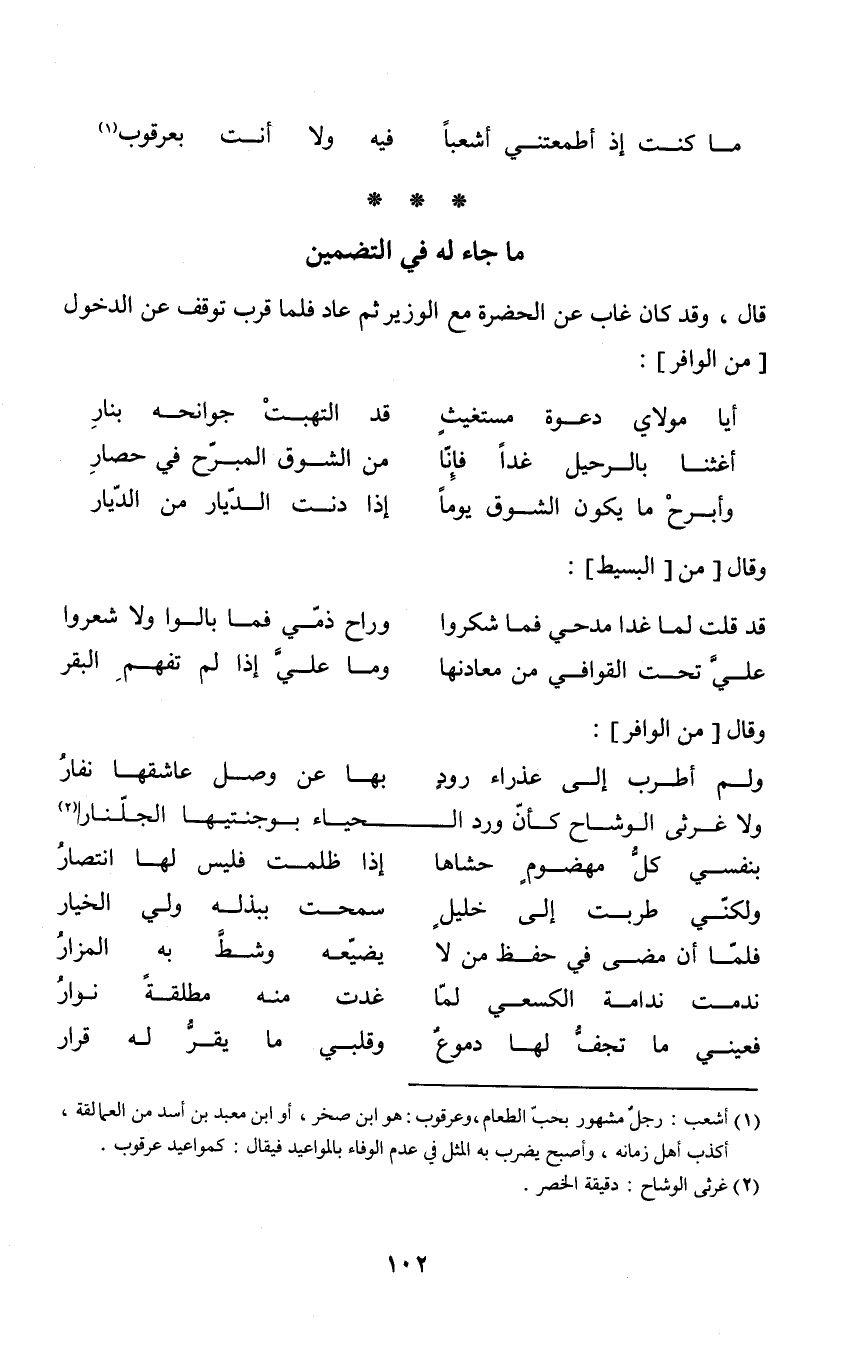 ما كنت إذ أطمعتني أشعباً فيه ولا أنت بعرقوب(١)
* * *
ما جاء له في التضمين
قال ، وقد كان غاب عن الحضرة مع الوزير ثم عاد فلما قرب توقف عن الدخول
[ من الوافر ] :
أيا مولاي دعوة مستغيثٍ قد التهبتْ جوانحه بنارِ
أغثنا بالرحيل غداً فإنّا من الشوق المبرّح في حصارِ
وأبرحْ ما يكون الشوق يوماً إذا دنت الدّيار من الدّيار
وقال [ من [ البسيط ] :
قد قلت لما غدا مدحي فما شكروا وراح ذمّي فما بالوا ولا شعروا
عليَّ تحت القوافي من معادنها وما عليَّ إذا لم تفهمِ البقر
وقال [ من الوافر ] :
ولم أطرب إلى عذراء رودٍ بها عن وصل عاشقها نفارُ
ولا غرثى الوشاح كأنّ ورد الـحياء بوجنتيها الجلّنارا(٢)
بنفسي كلُّ مهضومٍ حشاها إذا ظلمت فليس لها انتصارُ
ولكنّي طربت إلى خليلٍ سمحت ببذله ولي الخيار
فلمّا أن مضى في حفظ من لا يضيّعه وشطَّ به المزارُ
ندمت ندامة الكسعي لمّا غدت منه مطلقةً نوارُ
فعيني ما تجفُّ لها دموعٌ وقلبي ما يقرُّ له قرار
(١) أشعب : رجلٌ مشهور بحبّ الطعام،وعرقوب : هو ابن صخر ، أو ابن معبد بن أسد من العمالقة ،
أكذب أهل زمانه ، وأصبح يضرب به المثل في عدم الوفاء بالمواعيد فيقال : كمواعيد عرقوب .
(٢) غرثى الوشاح : دقيقة الخصر .
١٠٢